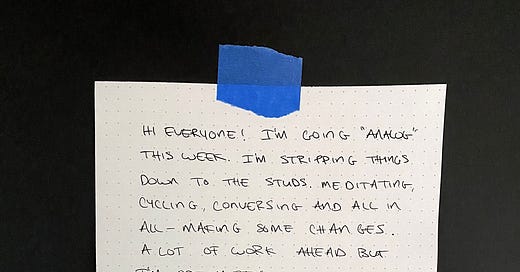 HI EVERYONE! I'M GOING "ANALOG"
THIS WEEK. I'M STRIPPING THINGS
DOWN TO THE STUDS. MEDITATING,
CYCLING, CONVERSING AND ALL IN
ALL - MAKING SOME CHANGES.
A LOT OF WORK AHEAD BUT